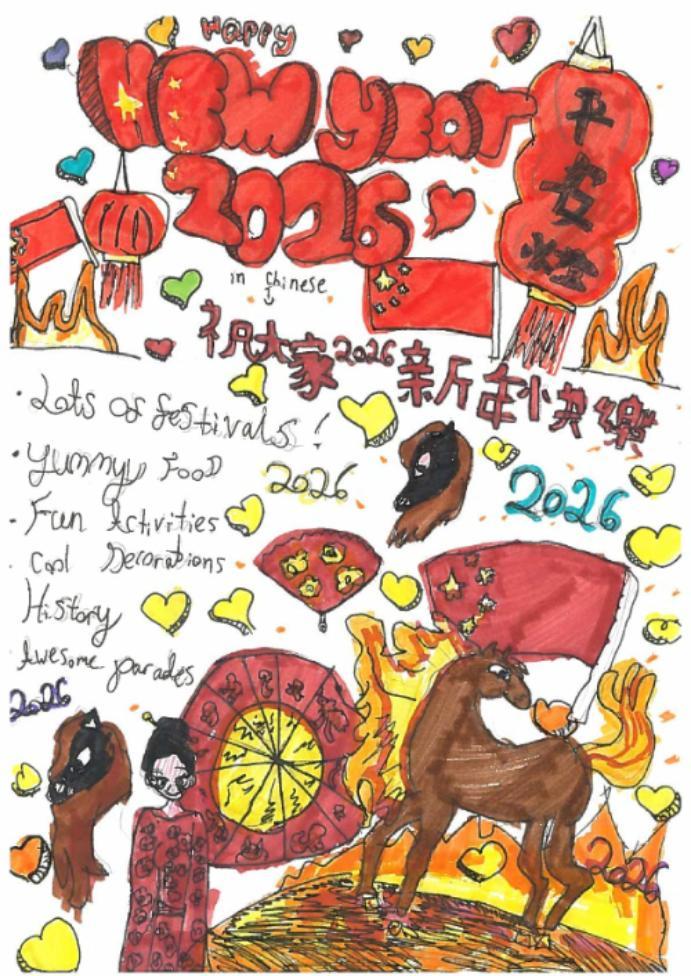 Happy
New Year
2026
平
安
燈
in Chinese
祝大家2026新年快樂
· Lots of festivals!
· Yummy Food
· Fun Activities
Cool Decorations
History
Awesome parades
2026
2026
2026
2026